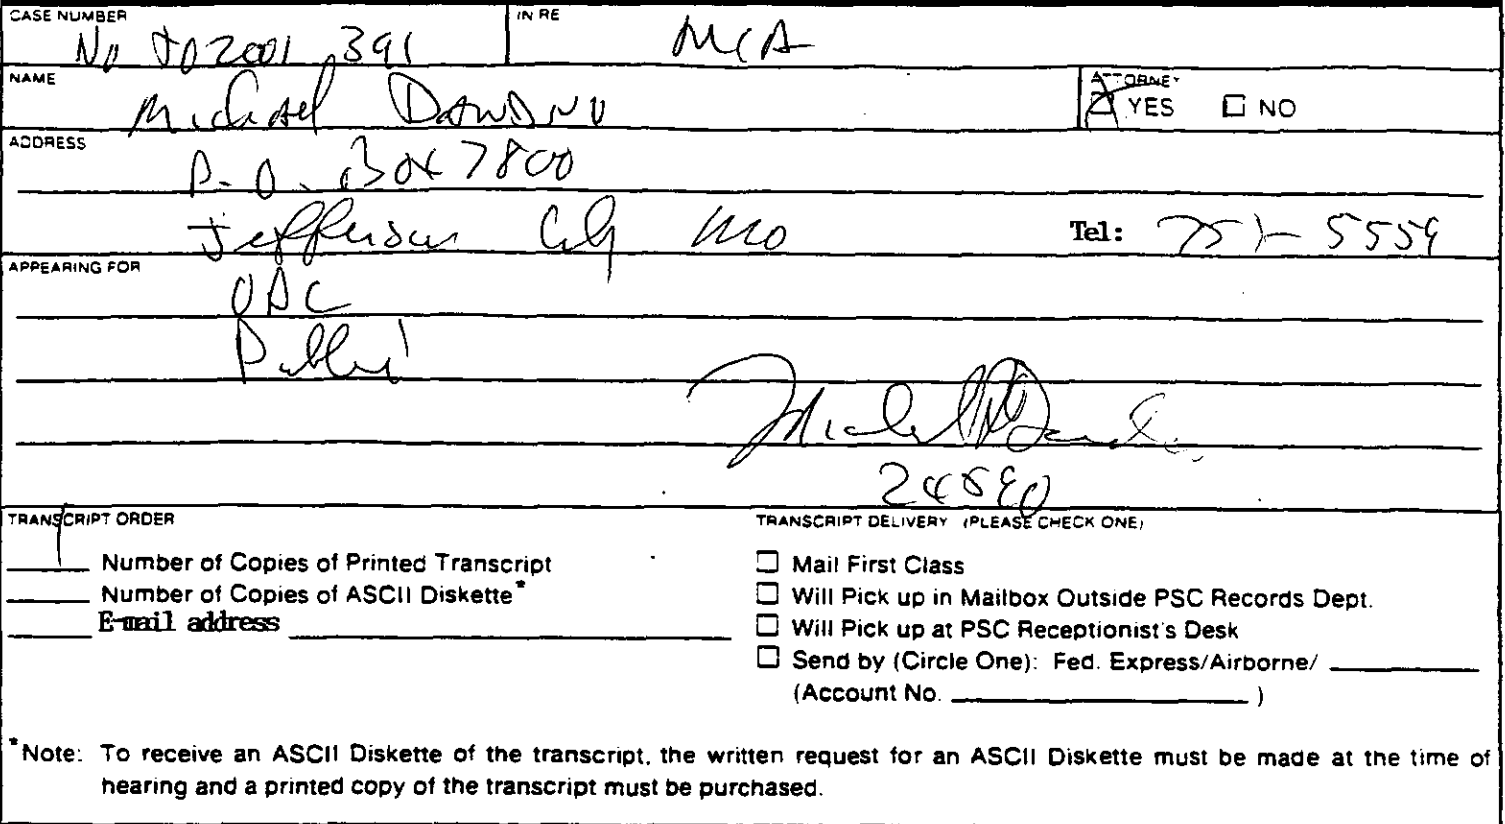 CASE NUMBER
IN RE
No TO2001 391
MCA
NAME
Michael
ATTORNEY
YES NO
ADDRESS
P.O. Box 7800
Jefferson City MO
Tel: 751-5559
APPEARING FOR
OPC
Public
TRANSCRIPT ORDER
1 Number of Copies of Printed Transcript
Number of Copies of ASCII Diskette*
E-mail address
TRANSCRIPT DELIVERY (PLEASE CHECK ONE)
Mail First Class
Will Pick up in Mailbox Outside PSC Records Dept.
Will Pick up at PSC Receptionist's Desk
Send by (Circle One): Fed. Express/Airborne/
(Account No. )
*Note: To receive an ASCII Diskette of the transcript, the written request for an ASCII Diskette must be made at the time of
hearing and a printed copy of the transcript must be purchased.